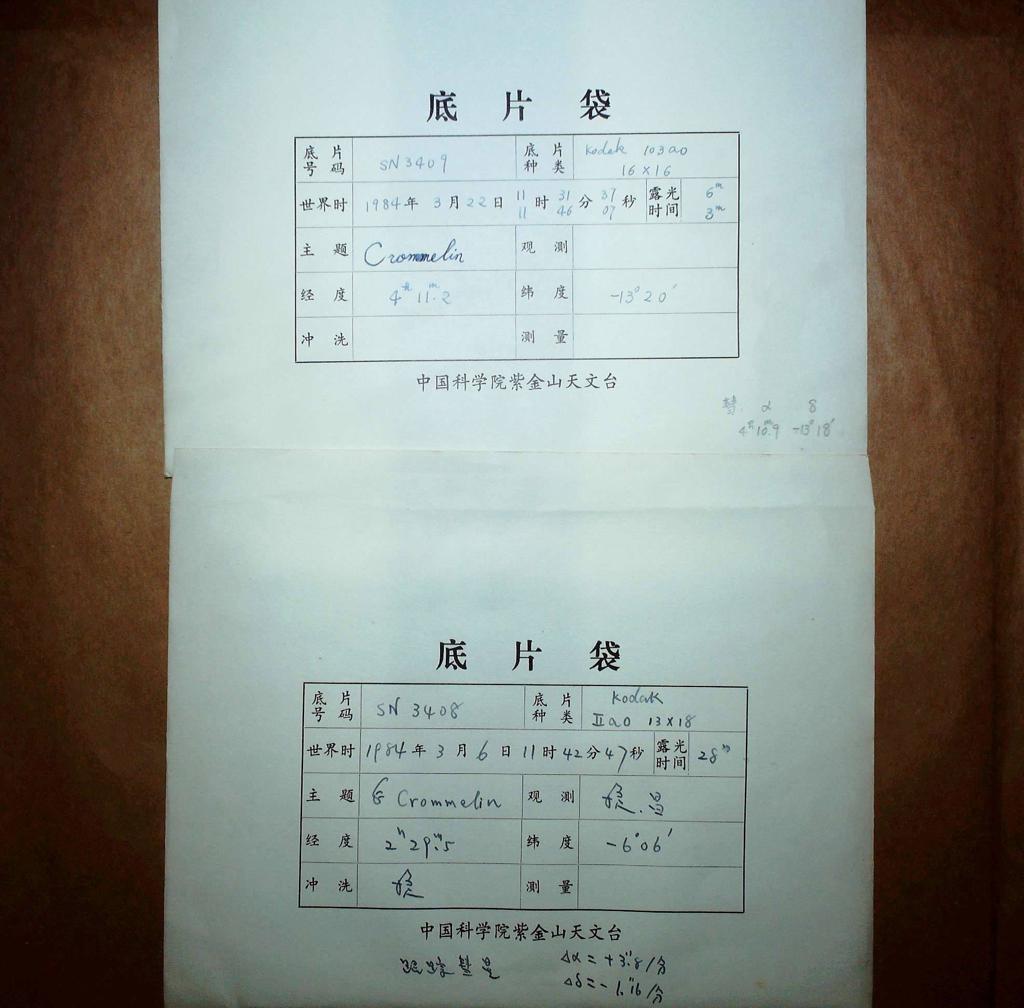 底 片 袋
底片号码 SN3409 底片种类 Kodak 103aO 16×16
世界时 1984年 3月22日 11时31分37秒 露光时间 6ᵐ
11 46 07 3ᵐ
主 题 Crommelin 观 测
经 度 4ʰ 11ᵐ.2 纬 度 -13°20′
冲 洗 测 量
中国科学院紫金山天文台
彗. α δ
4ʰ10ᵐ.9 -13°18′
底 片 袋
底片号码 SN 3408 底片种类 Kodak IIaO 13×18
世界时 1984年 3月6日 11时42分47秒 露光时间 28ᵐ
主 题 Crommelin 观 测
经 度 2ʰ29ᵐ.5 纬 度 -6°06′
冲 洗 测 量
中国科学院紫金山天文台
跟踪彗星 Δα=+3″.8/分
Δδ=-1″.16/分